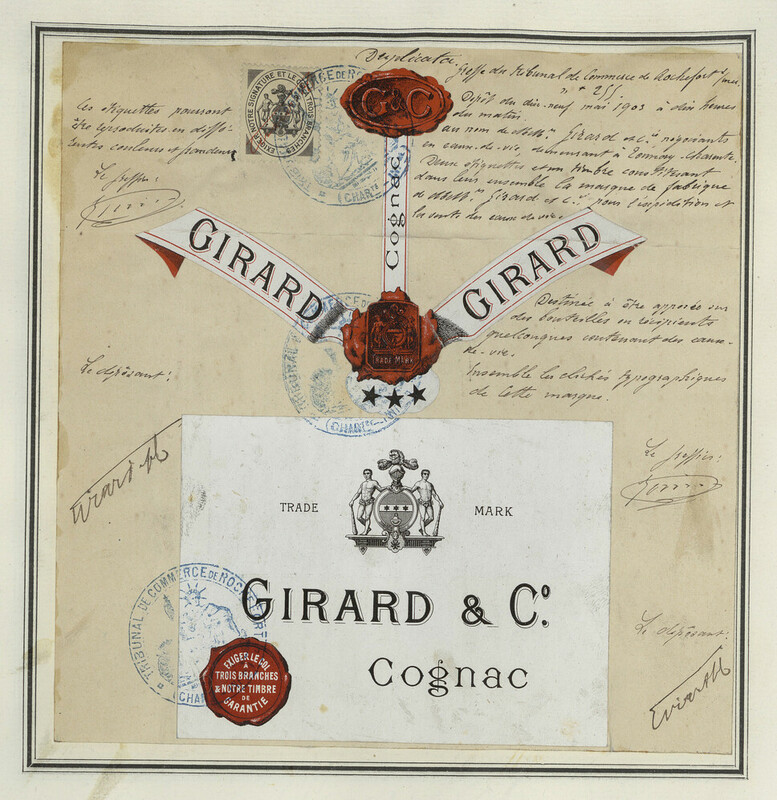 Duplicata.
Greffe du Tribunal de Commerce de Rochefort s/mer
n° 255
Dépôt du dix-neuf mai 1903 à dix heures
du matin.
au nom de MM. Girard et Cie négociants
en eaux-de-vie, demeurant à Tonnay-Charente.
Deux étiquettes et un timbre constituant
dans leur ensemble la marque de fabrique
de MM. Girard et Cie pour l'expédition et
la vente des eaux-de-vie.
Les étiquettes pourront
être reproduites en diffé-
rentes couleurs et grandeurs
Le greffier:
EXIGER NOTRE SIGNATURE ET LE COL TROIS BRANCHES
G&C
Cognac
GIRARD
GIRARD
TRADE MARK
Destinée à être apposée sur
des bouteilles ou récipients
quelconques contenant des eaux-
de-vie.
Ensemble les clichés typographiques
de cette marque.
Le déposant:
Girard & Co
Le greffier:
TRADE MARK
GIRARD & Cº.
Cognac
TRIBUNAL DE COMMERCE DE ROCHEFORT
(CHAR
EXIGER LE COL
À
TROIS BRANCHES
& NOTRE TIMBRE
DE
GARANTIE
Le déposant: